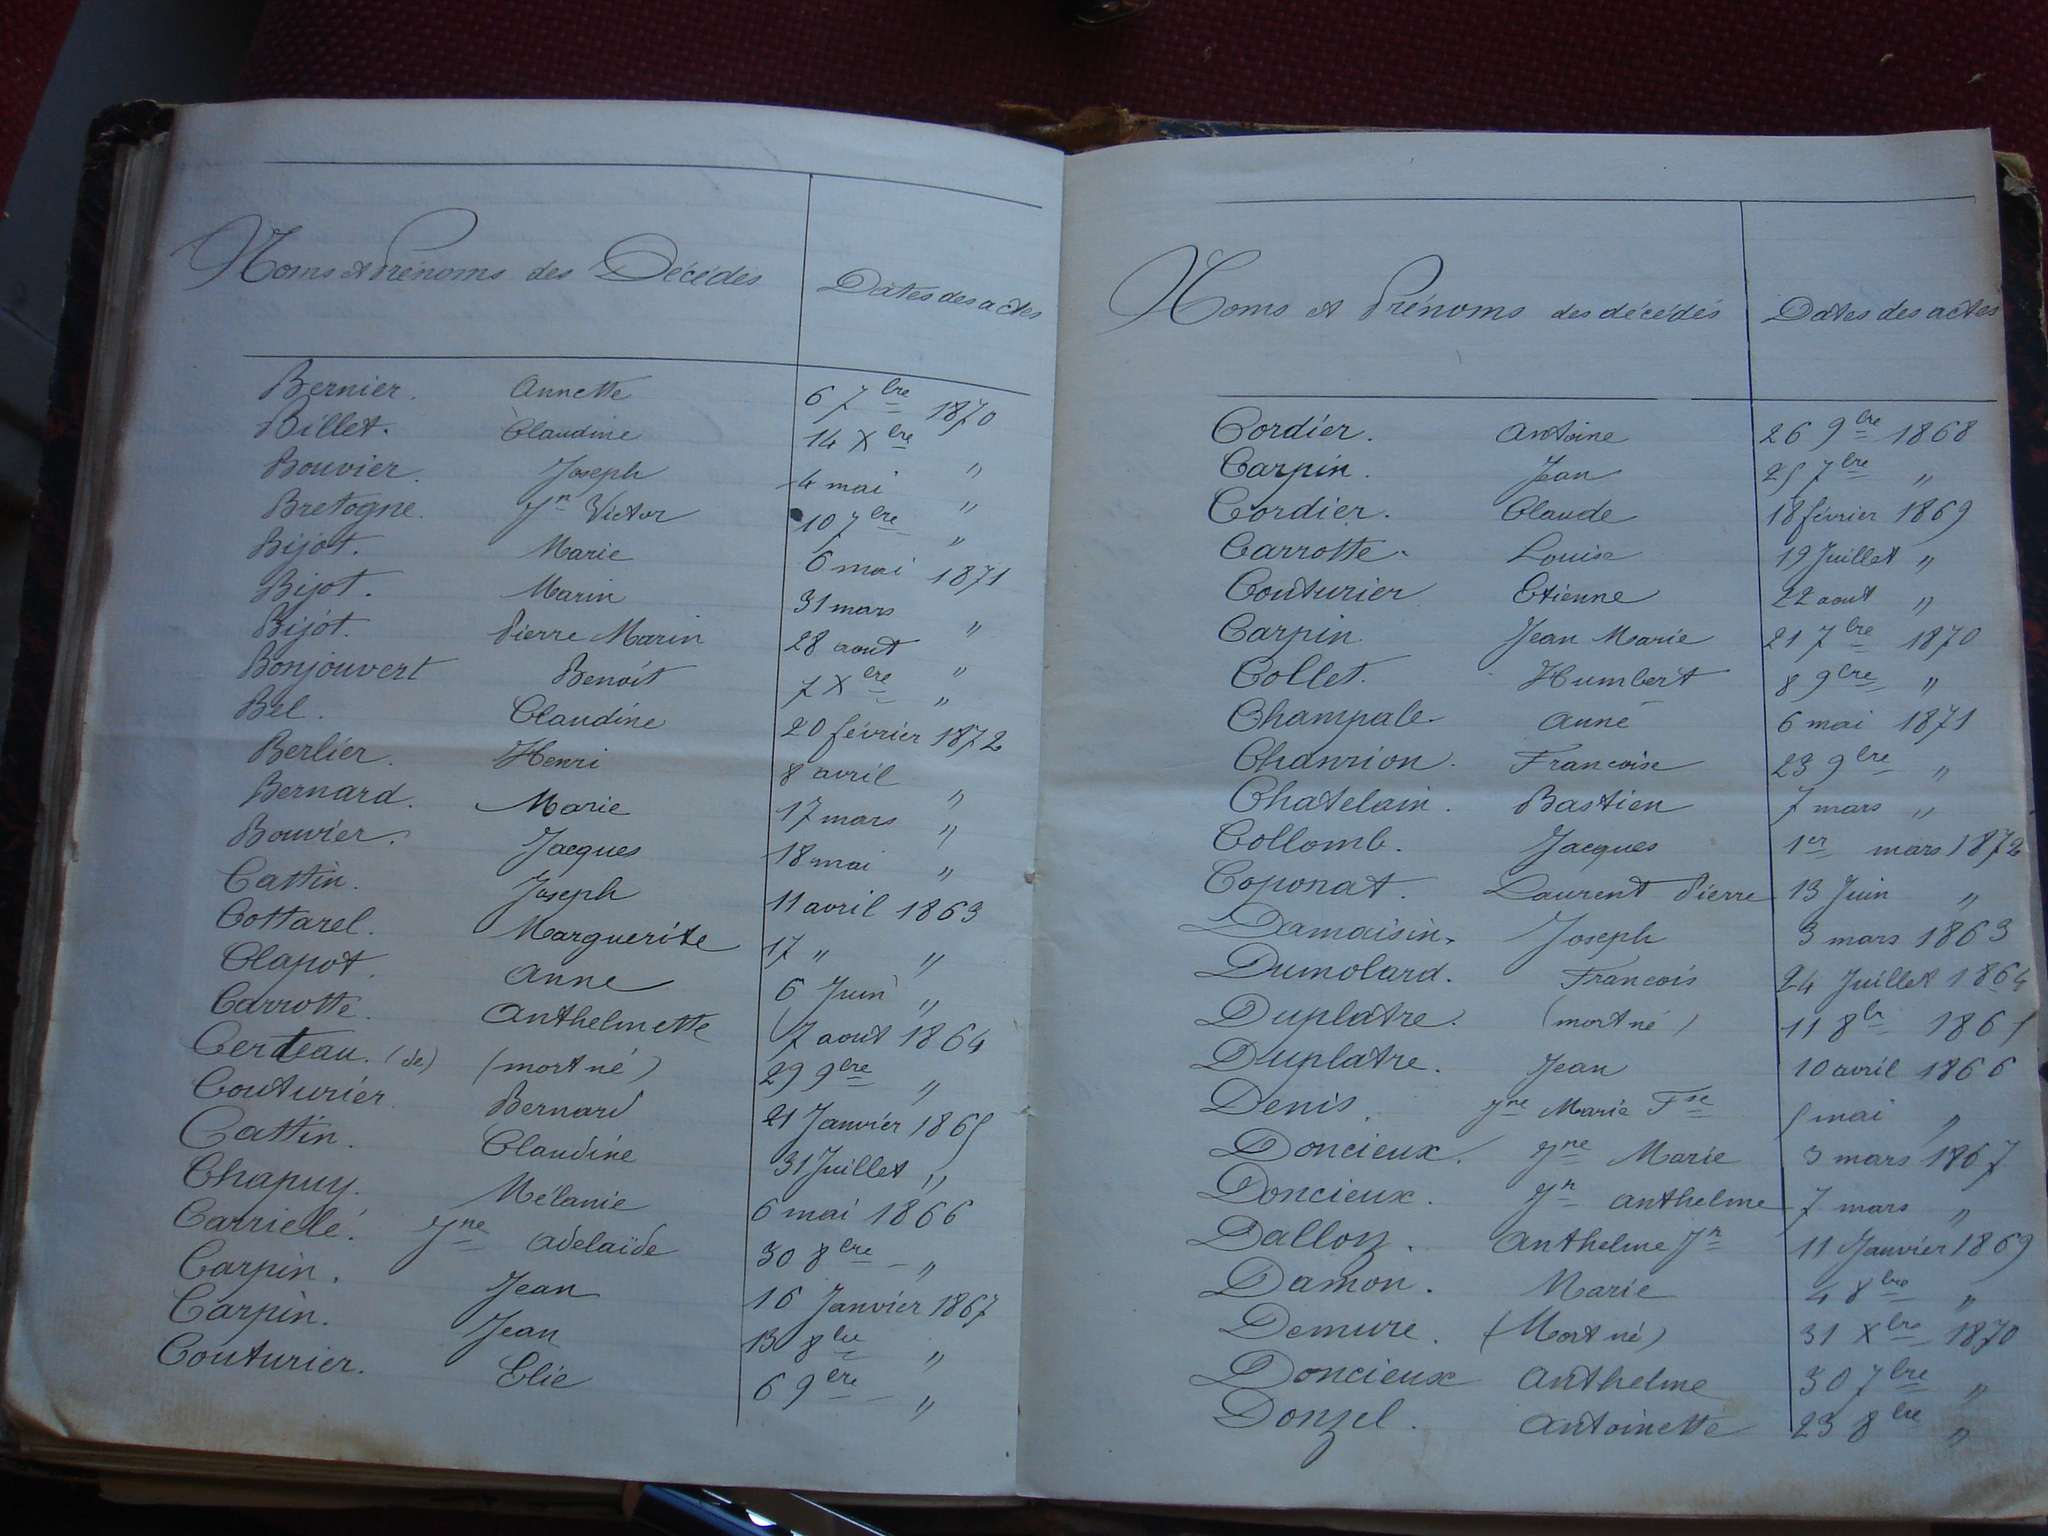 Noms et Prénoms des Décédés Dates des actes
Bernier. Annette 6 7bre 1870
Billet. Claudine 14 Xbre "
Bouvier. Joseph 4 mai "
Bretogne. Jn Victor 10 7bre "
Bijot. Marie 6 mai 1871
Bijot. Marin 31 mars "
Bijot. Pierre Marin 28 aout "
Bonjouvert Benoit 7 Xbre "
Bel. Claudine 20 février 1872
Berlier. Henri 8 avril "
Bernard. Marie 17 mars "
Bouvier. Jacques 18 mai "
Cattin. Joseph 11 avril 1863
Cottarel. Marguerite 17 " "
Clapot. Anne 6 Juin "
Carrotte. Anthelmette 7 aout 1864
Certeau. (de) (mort né) 29 9bre "
Couturier Bernard 21 Janvier 1865
Cattin. Claudine 31 Juillet "
Chapuy. Mélanie 6 mai 1866
Carrielé. Jne Adelaïde 30 8bre "
Carpin. Jean 16 Janvier 1867
Carpin. Jean 13 8bre "
Couturier. Elie 6 9bre "
Noms et Prénoms des décédés Dates des actes
Cordier. Antoine 26 9bre 1868
Carpin. Jean 25 7bre "
Cordier. Claude 18 février 1869
Carrotte. Louise 19 Juillet "
Couturier Etienne 22 aout "
Carpin. Jean Marie 21 7bre 1870
Collet. Humbert 8 9bre "
Champale. Anne 6 mai 1871
Chanrion. Francoise 23 9bre "
Chatelain. Bastien 7 mars "
Collomb. Jacques 1er mars 1872
Coponat. Laurent Pierre 13 Juin "
Damaisin. Joseph 3 mars 1863
Dumolard. Francois 24 Juillet 1864
Duplatre. (mort né) 11 8br 1865
Duplatre. Jean 10 avril 1866
Denis. Jne Marie Fse 5 mai "
Doncieux. Jne Marie 3 mars 1867
Doncieux. Jn Anthelme 7 mars "
Dalloz. Anthelme Jn 11 Janvier 1869
Damon. Marie 4 8bre "
Demure. (Mort né) 31 Xbre 1870
Doncieux Anthelme 30 7bre "
Donzel. Antoinette 23 8bre "